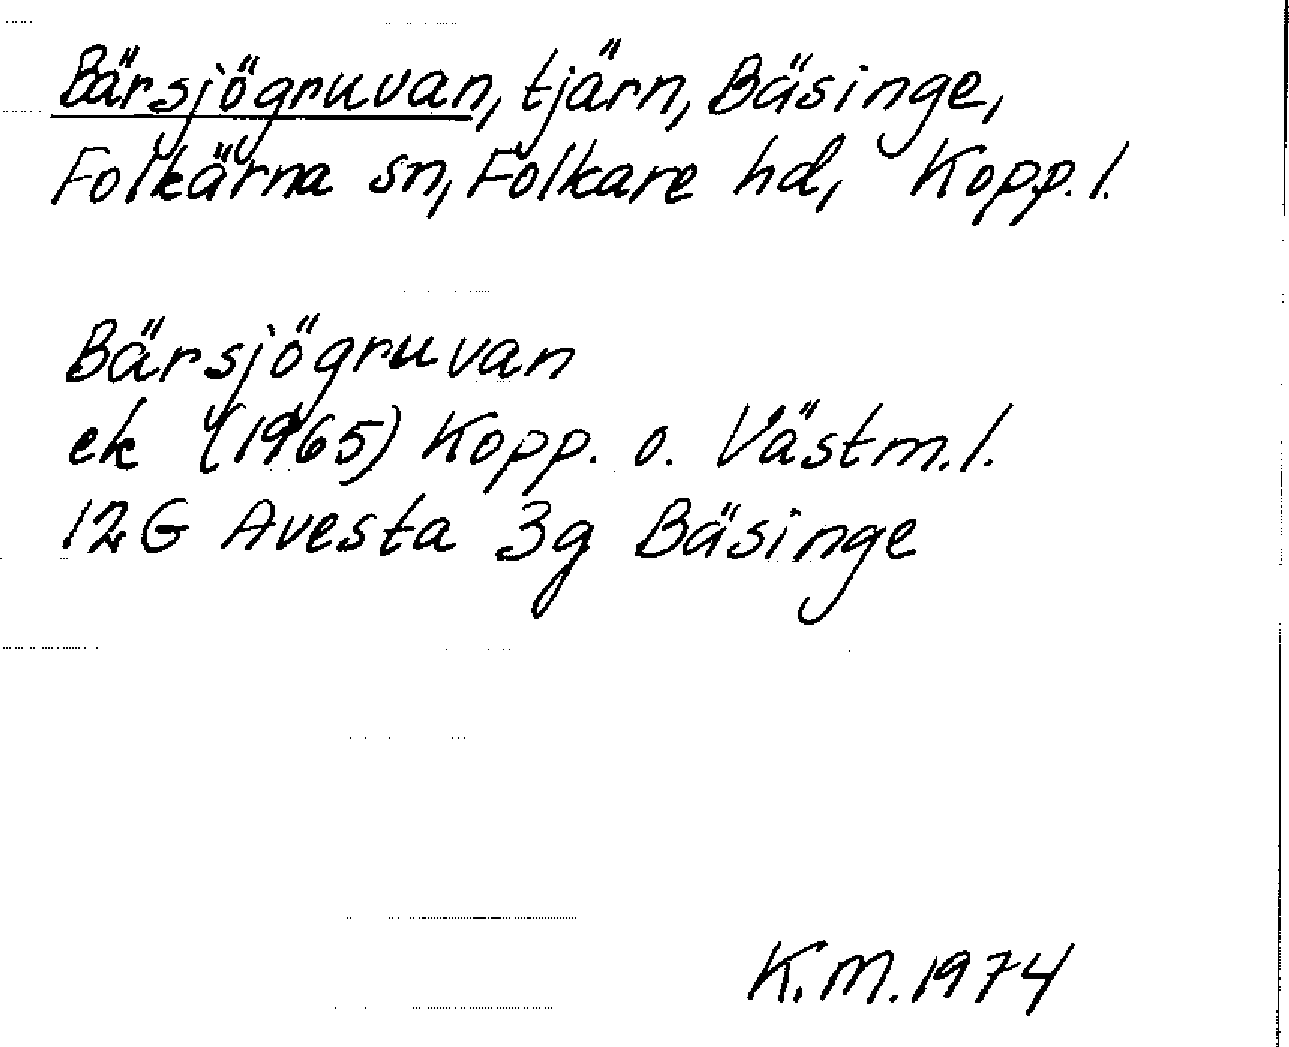 Bärsjögruvan, tjärn, Bäsinge,
Folkärna sn, Folkare hd, Kopp. l.
Bärsjögruvan
ek (1965) Kopp. o. Västm. l.
12G Avesta 3g Bäsinge
K.M. 1974